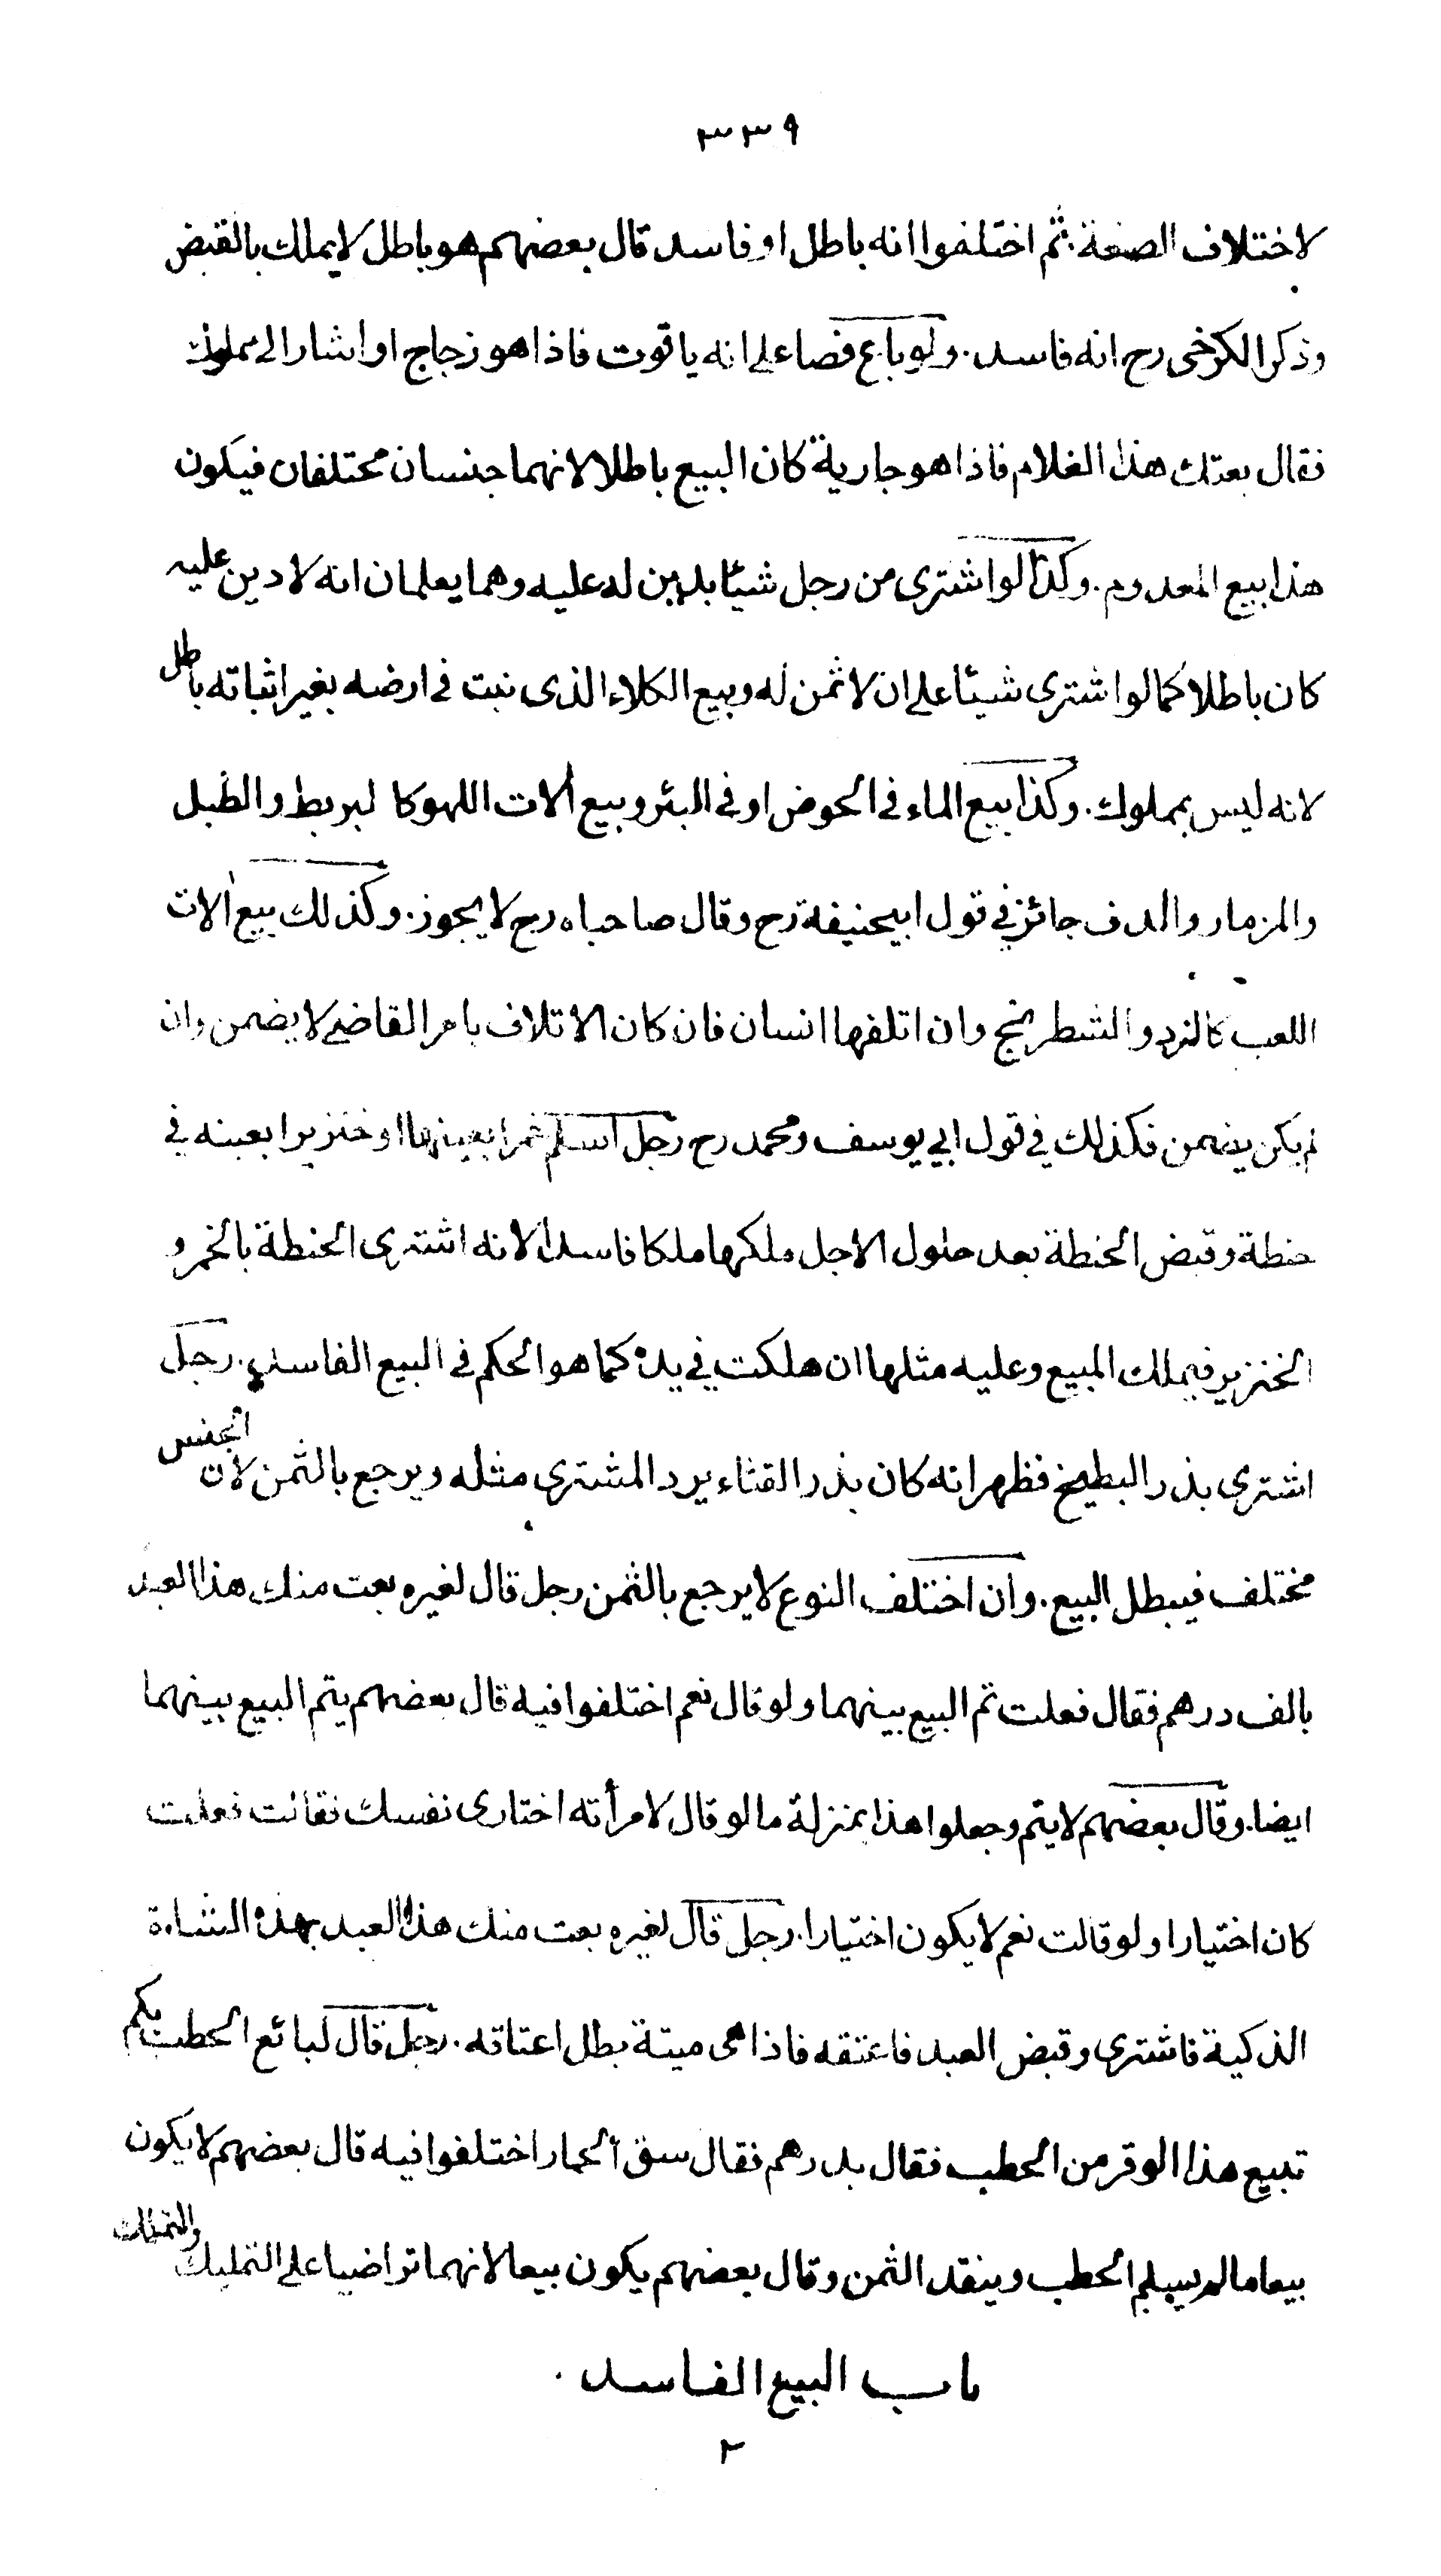 ٣٣٩
لاختلاف الصنعة. ثم اختلفوا انه باطل او فاسد قال بعضهم هو باطل لا يملك بالقبض
وذكر الكرخى رح انه فاسد. ولو باع فصا على انه ياقوت فاذا هو زجاج او اشار الى مملوك
فقال بعتك هذا الغلام فاذا هو جارية كان البيع باطلا لانهما جنسان مختلفان فيكون
هذا بيع المعدوم. وكذا لو اشترى من رجل شيئا بدين له عليه وهما يعلمان انه لا دين عليه
كان باطلا كما لو اشترى شيئا على ان لا ثمن له وبيع الكلاء الذى نبت فى ارضه بغير اثباته باطل
لانه ليس بمملوك. وكذا بيع الماء فى الحوض او فى البئر وبيع ألات اللهو كا لبربط والطبل
والمزمار والدف جائز في قول ابيحنيفة رح وقال صاحباه رح لا يجوز. وكذلك بيع ألات
اللعب كالنرد والشطرنج وان اتلفها انسان فان كان الاتلاف بامر القاضى لا يضمن وان
لم يكن يضمن فكذلك في قول ابي يوسف ومحمد رح رجل اسلم خمرا بعينها او خنزيرا بعينه في
حنطة وقبض الحنطة بعد حلول الاجل ملكها ملكا فاسدا لانه اشترى الحنطة بالخمر و
الخنزير فيملك المبيع وعليه مثلها ان هلكت في يده كما هو الحكم فى البيع الفاسد. رجل
اشترى بذر البطيخ فظهر انه كان بذر القثاء يرد المشترى مثله ويرجع بالثمن لان الجنس
مختلف فيبطل البيع. وان اختلف النوع لا يرجع بالثمن رجل قال لغيره بعت منك هذا العبد
بالف درهم فقال فعلت تم البيع بينهما ولو قال نعم اختلفوا فيه قال بعضهم يتم البيع بينهما
ايضا. وقال بعضهم لا يتم وجعلوا هذا بمنزلة ما لو قال لامرأته اختارى نفسك فقالت فعلت
كان اختيارا ولو قالت نعم لا يكون اختيارا. رجل قال لغيره بعت منك هذا العبد بهذه الشاءة
الذكية فاشترى وقبض العبد فاعتقه فاذا هى ميتة بطل اعتاقه. رجل قال لبائع الحطب بكم
تبيع هذا الوقر من الحطب فقال بدرهم فقال سق ألحمار اختلفوا فيه قال بعضهم لا يكون
بيعا ما لم يسلم الحطب وينقد الثمن وقال بعضهم يكون بيعا لانهما تراضيا على التمليك والتملك
باب البيع الفاسد.
٢